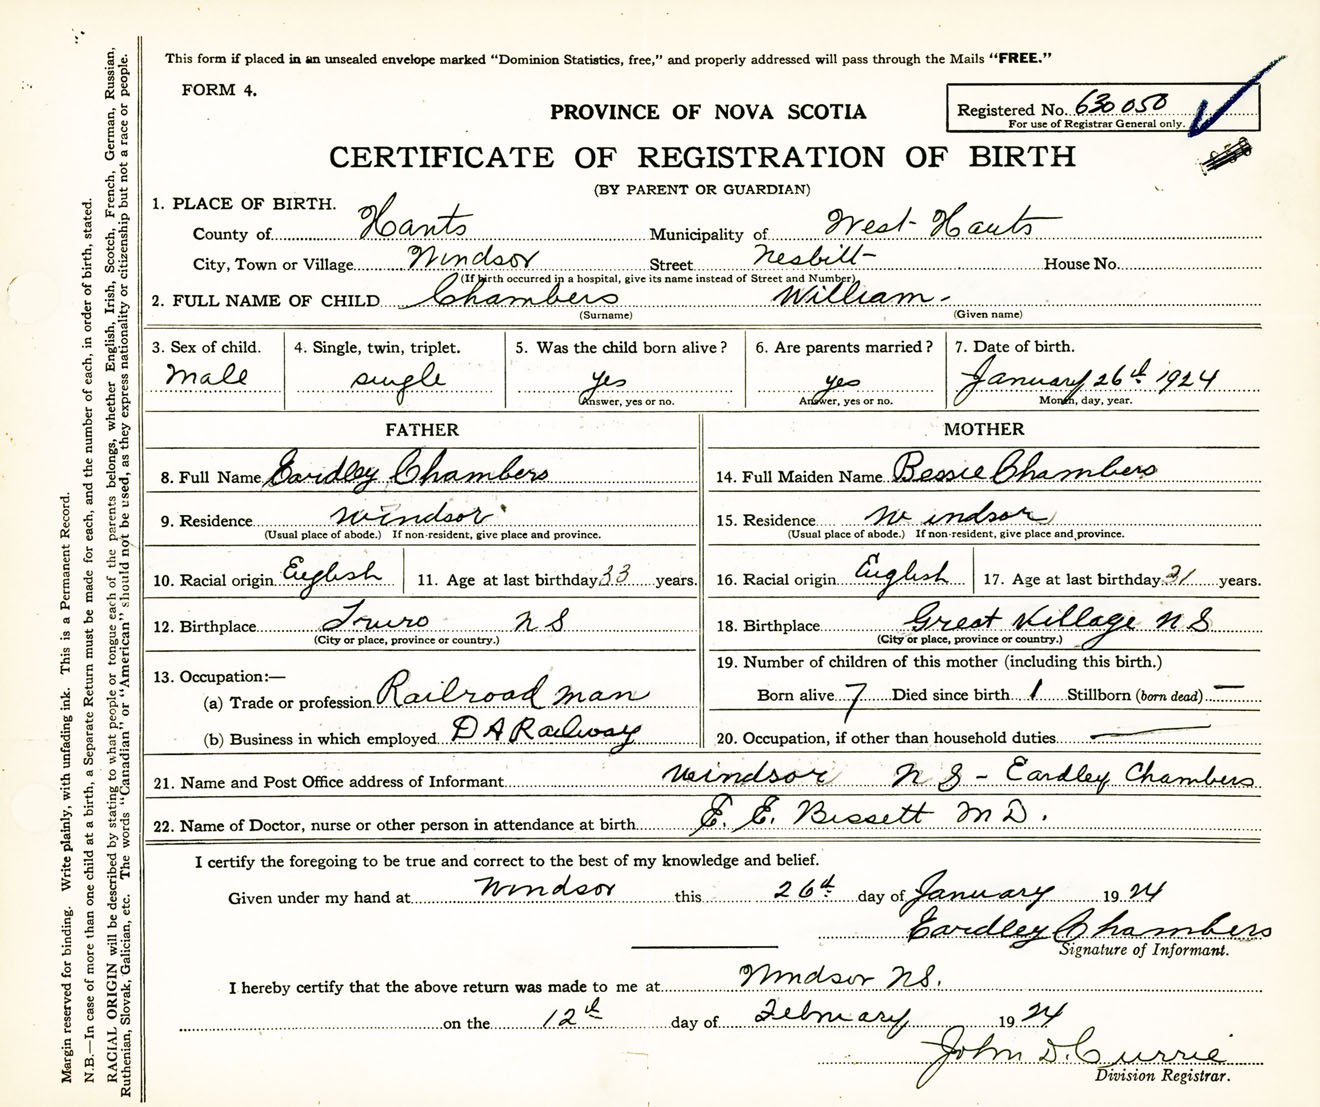 This form if placed in an unsealed envelope marked "Dominion Statistics, free," and properly addressed will pass through the Mails "FREE."
FORM 4.
Registered No. 630050
For use of Registrar General only.
PROVINCE OF NOVA SCOTIA
CERTIFICATE OF REGISTRATION OF BIRTH
(BY PARENT OR GUARDIAN)
1. PLACE OF BIRTH.
County of Hants Municipality of West Hants
City, Town or Village Windsor Street Nesbitt House No.
(If birth occurred in a hospital, give its name instead of Street and Number)
2. FULL NAME OF CHILD Chambers William
(Surname) (Given name)
3. Sex of child. 4. Single, twin, triplet. 5. Was the child born alive? 6. Are parents married? 7. Date of birth.
Male single yes yes January 26th 1924
Answer, yes or no. Answer, yes or no. Month, day, year.
FATHER
8. Full Name Eardley Chambers
9. Residence Windsor
(Usual place of abode.) If non-resident, give place and province.
10. Racial origin English 11. Age at last birthday 33 years.
12. Birthplace Truro N S
(City or place, province or country.)
13. Occupation:—
(a) Trade or profession Railroad man
(b) Business in which employed D A Railway
MOTHER
14. Full Maiden Name Bessie Chambers
15. Residence Windsor
(Usual place of abode.) If non-resident, give place and province.
16. Racial origin English 17. Age at last birthday 31 years.
18. Birthplace Great Village N S
(City or place, province or country.)
19. Number of children of this mother (including this birth.)
Born alive 7 Died since birth 1 Stillborn (born dead) —
20. Occupation, if other than household duties —
21. Name and Post Office address of Informant Windsor N S - Eardley Chambers
22. Name of Doctor, nurse or other person in attendance at birth E. E. Bissett M D.
I certify the foregoing to be true and correct to the best of my knowledge and belief.
Given under my hand at Windsor this 26th day of January 1924
Eardley Chambers
Signature of Informant.
I hereby certify that the above return was made to me at Windsor N S.
on the 12th day of February 1924
John D. Currie
Division Registrar.
Margin reserved for binding. Write plainly, with unfading ink. This is a Permanent Record.
N.B.—In case of more than one child at a birth, a Separate Return must be made for each, and the number of each, in order of birth, stated.
RACIAL ORIGIN will be described by stating to what people or tongue each of the parents belongs, whether English, Irish, Scotch, French, German, Russian,
Ruthenian, Slovak, Galician, etc. The words "Canadian" or "American" should not be used, as they express nationality or citizenship but not a race or people.